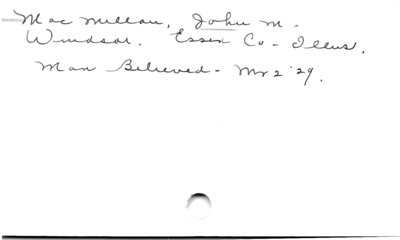 Mac Millan, John M.
Windsor. Essex Co - Illus.
Man Believed - Mr 2 '29.